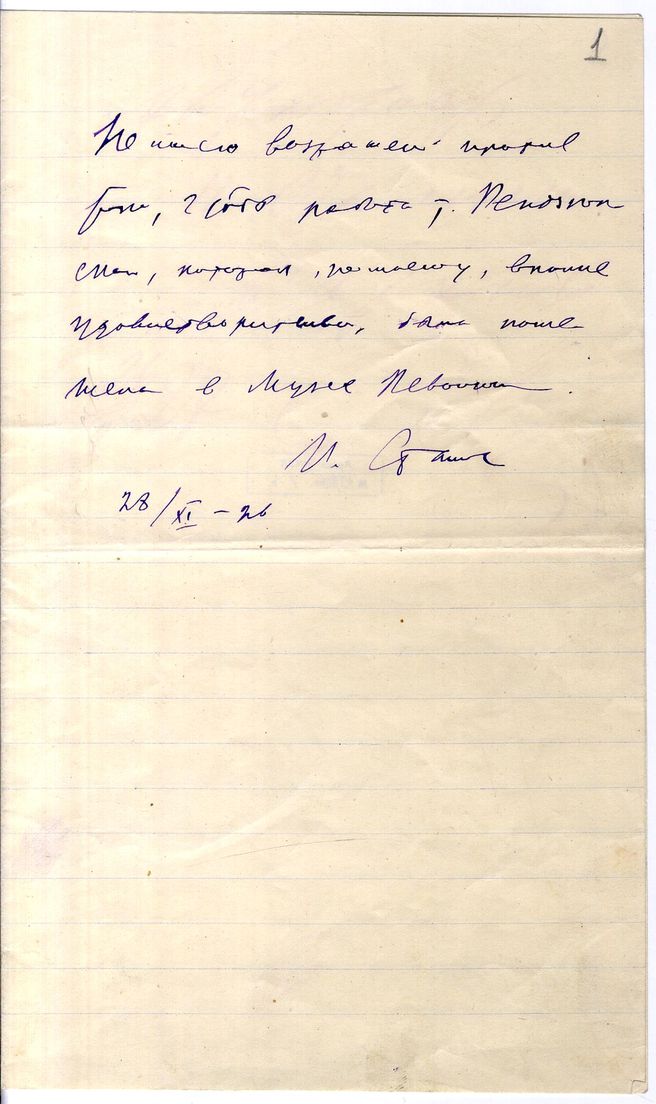 1
Не имею возражен. против
того, чтобы работа т.
ской, которая, по-моему, вполне
удовлетворительна, была поме-
щена в Музее Революции.
И. Сталин
28/XI – 26